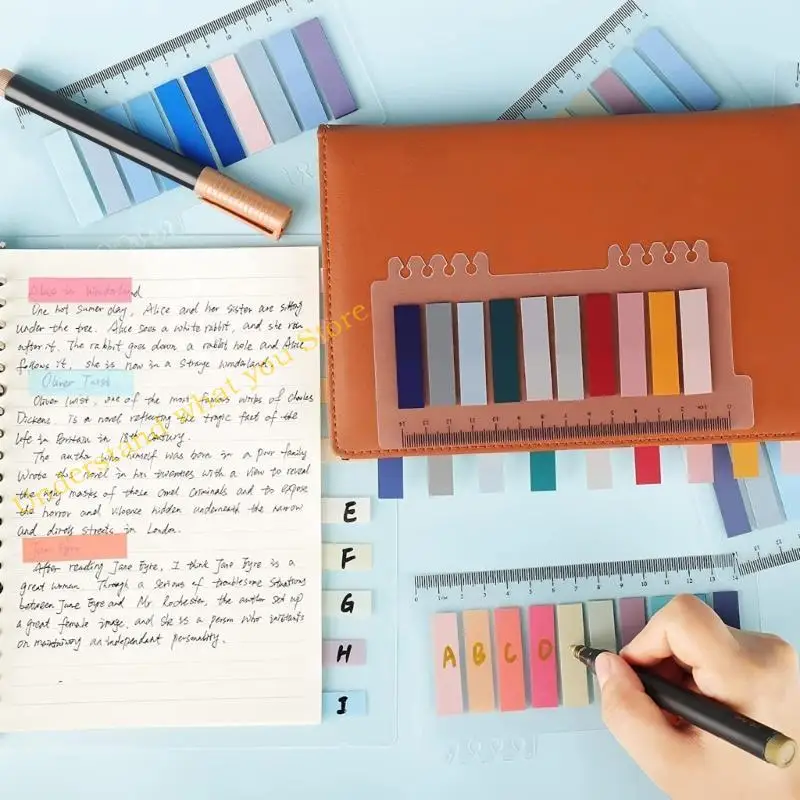 Alice in Wonderland
One hot sumer day, Alice and her sister are sitting
under the tree. Alice sees a white rabbit, and she ran
after it. The rabbit goes down a rabbit hole and Alice
follows it, she is now in a strange wonderland.
Oliver Twist
Oliver Twist, one of the most famous works of Charles
Dickens, is a novel reflecting the tragic fact of the
life in Britain in 18th century.
The autho himself was born in a poor family
Wrote the novel in his twenties with a view to reveal
the ugly masks of those cruel criminals and to expose
the horror and violence hidden underneath the narrow
and streets in London.
Jane Eyre
After reading Jane Eyre, I think Jane Eyre is a
great woman. Through a serious of troublesome situations
between Jane Eyre and Mr Rochester, the author set up
a great female image, and she is a person who insistants
on maintaining an independant personality.
Understand what you Store
E
F
G
H
I
A B C D